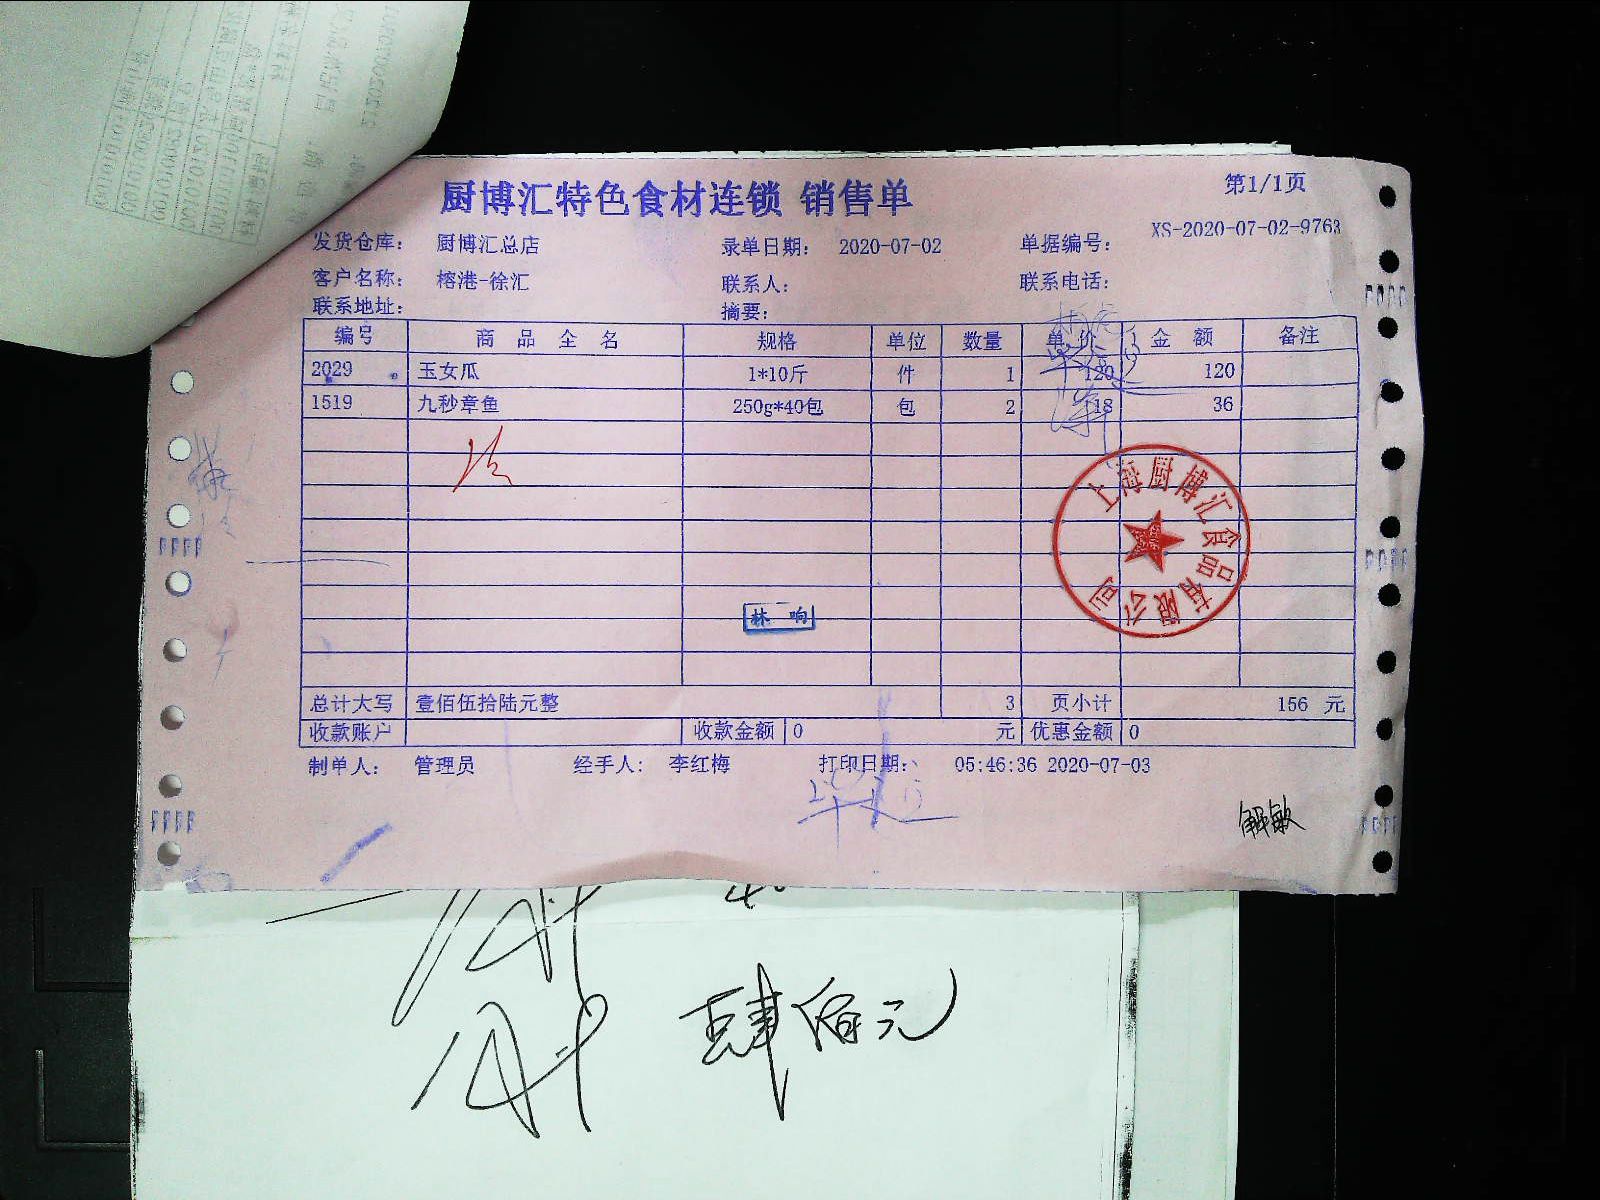 厨博汇特色食材连锁 销售单
第1/1页
发货仓库： 厨博汇总店 录单日期： 2020-07-02 单据编号： XS-2020-07-02-9763
客户名称： 榕港-徐汇 联系人： 联系电话：
联系地址： 摘要：
编号 商 品 全 名 规格 单位 数量 单 价 金 额 备注
2029 玉女瓜 1*10斤 件 1 120 120
1519 九秒章鱼 250g*40包 包 2 18 36
上海厨博汇食品有限公司
林 响
总计大写 壹佰伍拾陆元整 3 页小计 156 元
收款账户 收款金额 0 元 优惠金额 0
制单人： 管理员 经手人： 李红梅 打印日期： 05:46:36 2020-07-03
解敏
肆佰元